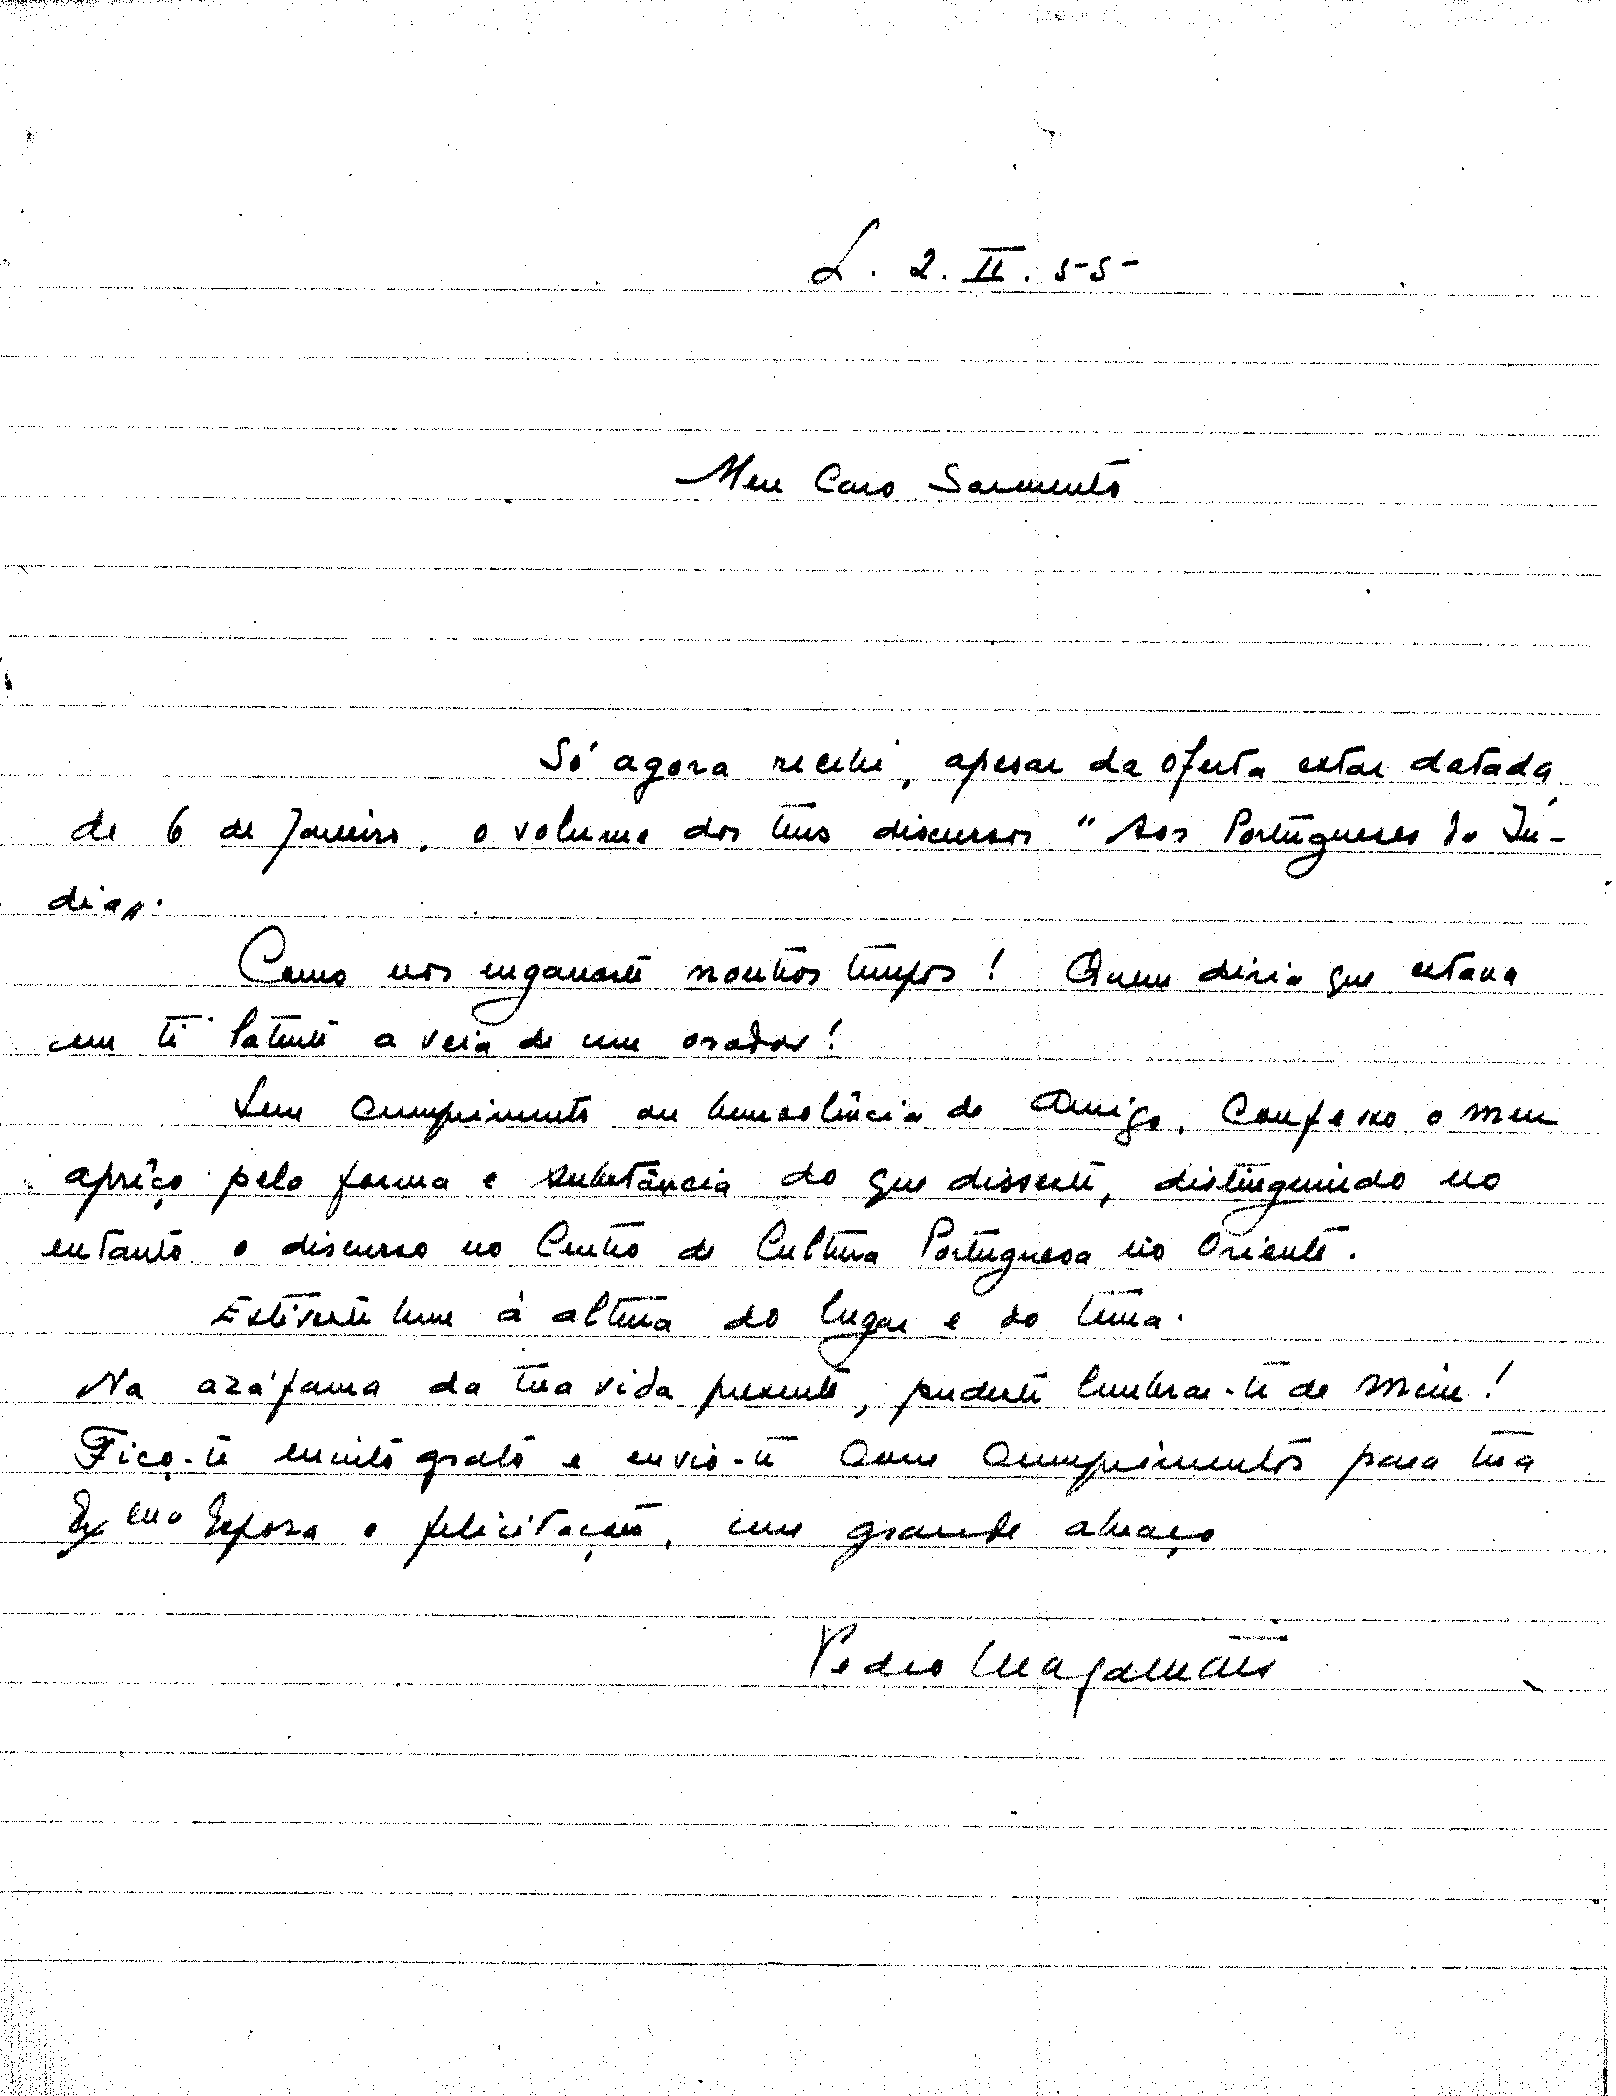 L. 2. II. 55
Meu Caro Sarmento
Só agora recebi, apesar da oferta estar datada
de 6 de Janeiro, o volume dos teus discursos "Aos Portugueses da Ín-
dia".
Como nos enganaste noutros tempos! Quem diria que estava
em ti latente a veia de um orador!
Sem cumprimento ou benevolência de Amigo, confesso o meu
aprêço pela forma e substância do que disseste, distinguindo no
entanto o discurso no Centro de Cultura Portuguesa no Oriente.
Estiveste bem à altura do lugar e do tema.
Na azáfama da tua vida presente, pudeste lembrar-te de mim!
Fico-te muito grato e envio-te com cumprimentos para tua
Exma Esposa e felicitações, um grande abraço
Pedro Magalhães